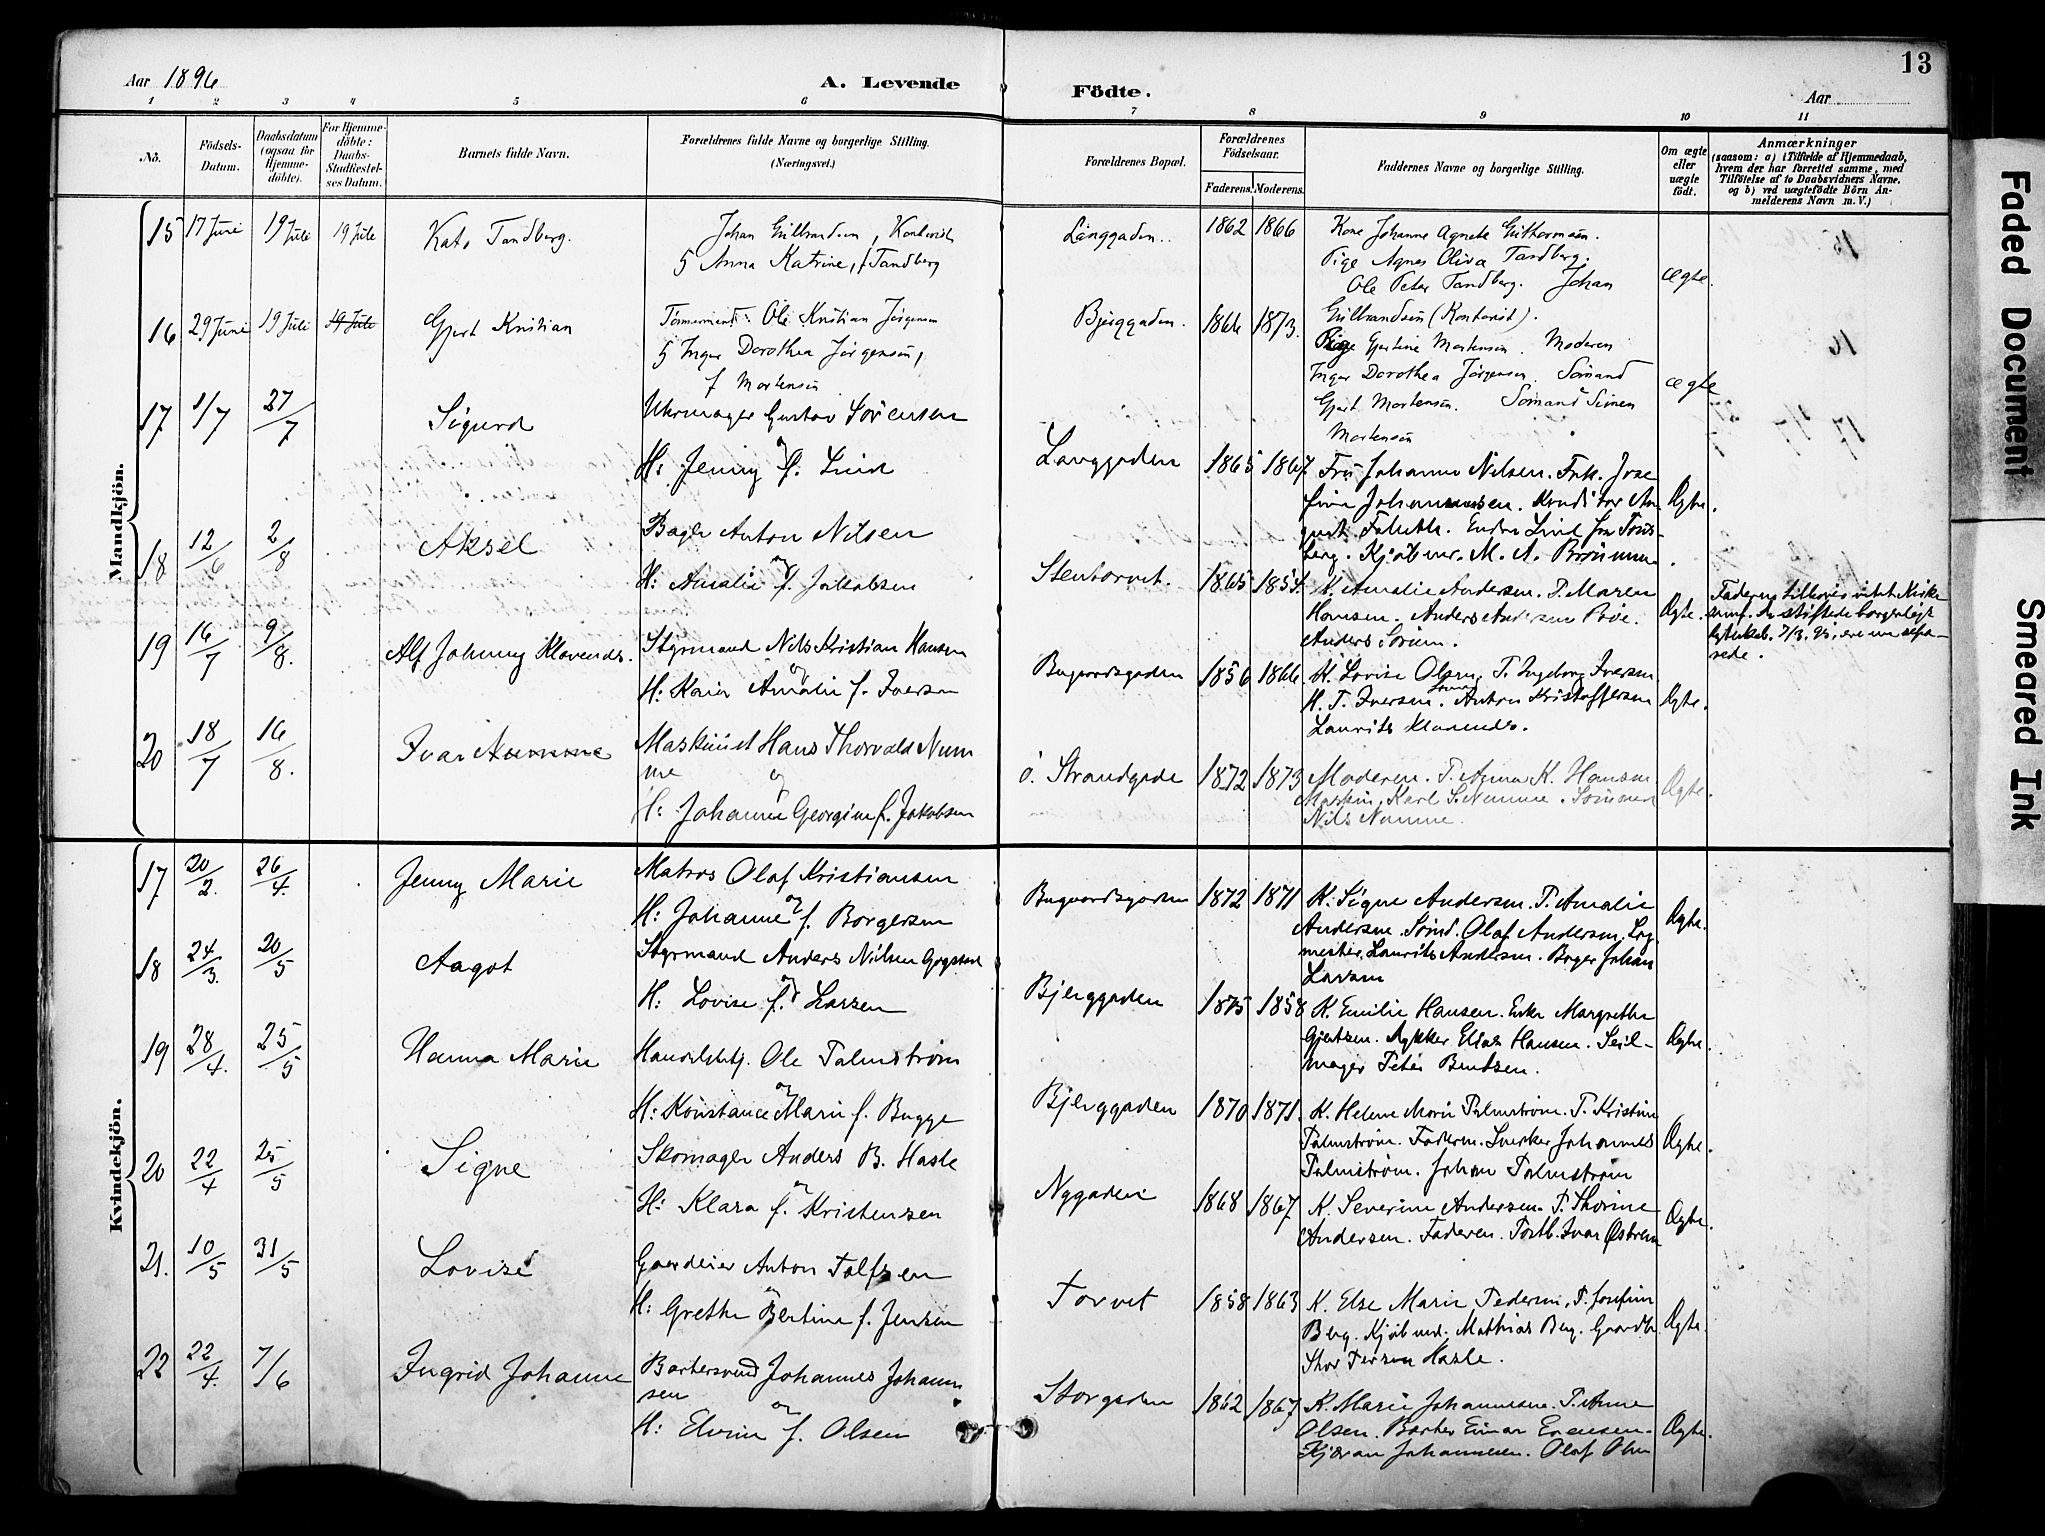 13
Aar 1896
A. Levende
Födte.
Aar
1 2 3 4 5 6 7 8 9 10 11
No.
Födsels-Datum.
Daabsdatum (ogsaa for Hjemmedöbte).
For Hjemmedöbte: Daabs-Stadfæstelses Datum.
Barnets fulde Navn.
Forældrenes fulde Navne og borgerlige Stilling.
(Næringsvei.)
Forældrenes Bopæl.
Forældrenes Födselsaar.
Faderens. Moderens.
Faddernes Navne og borgerlige Stilling.
Om ægte eller uægte födt.
Anmærkninger
(saasom: a) i Tilfælde af Hjemmedaab,
hvem der har forrettet samme, med
Tilföielse af to Daabsvidners Navne,
og b) ved uægtefödte Börn An-
melderens Navn m. V.)
Mandkjön.
15 17 Juni 19 Juli 19 Juli Kato Tandberg.
Johan Gulbrandsen, Kontorist
Anna Katrine, f Tandberg
Langgaden. 1862 1866
Kone Johanne Agnete
Pige Agnes Oliva Tandberg.
Ole Peter Tandberg. Johan
Gulbrandsen (Kontorist).
ægte.
16 29 Juni 19 Juli 19 Juli Gjert Kristian
Tömmermand Ole Kristian Jörgensen
Inger Dorothea Jörgensen,
f Mortensen
Bjerggaden. 1866 1873.
Pige Gjertine Mortensen. Moderen
Inger Dorothea Jörgensen. Sömand
Gjert Mortensen. Sömand Simen
Mortensen
ægte
17 1/7 27/7 Sigurd
Uhrmager Gustav Sörensen
og
H: Jenny f. Lind
Langgaden 1865 1867
Fru Johanne Nilsen. Frk. Jose
fine Johannessen. Konditor Au
gust. Endre Lind fra Töns-
berg. Kjöbm. M. A.
Ægte.
18 12/6 2/8 Aksel
Bager Anton Nilsen
og
H: Amalie f. Jakobsen
Stentorvet. 1865 1854.
K. Amalie Andersen. P. Maren
Hansen. Anders Andersen
Anders
Ægte.
Faderen
stiftede borgerligt
Ægteskab. 7/3. 95, ere nu sepa-
rede.
19 16/7 9/8. Alf Johnny Klavends.
Styrmand Nils Kristian Hansen
og
H: Karen Amalie f. Iversen
Bugaardsgaden 1856 1866.
K. Lovise Olsen, P. Ingeborg Iversen
H. T. Iversen. Anton Kristoffersen
Laurits
Ægte.
20 18/7 16/8. Ivar Numme
Maskinist Hans Thorvald Num
me
og
H: Johanne Georgine f. Jakobsen
ö. Strandgade 1872 1873
Moderen. P. Anna K. Hansen
Maskin. Karl S. Numme. Sömand
Nils Numme.
Ægte.
Kvindekjön.
17 20/2. 26/4. Jenny Marie
Matros Olaf Kristiansen
og
H: Johanne f. Borgersen
Bugaardsgaden 1872 1871
K. Signe Andersen. P. Amalie
Andersen. Sömd. Olaf Andersen, Log-
mester. Laurits Andersen. Bager Johan
Larsen
Ægte.
18 24/3. 20/5 Aagot
Styrmand Anders Nilsen Gogstad
og
H: Lovise f. Larsen
Bjerggaden 1875 1858
K. Emilie Hansen. Enke Margrethe
Gjertsen. Elias Hansen. Seil-
mager Peter Bentsen.
Ægte.
19 28/4. 25/5 Hanna Marie
Handelsbetj. Ole Palmström
og
H: Konstance Marie f. Bugge
Bjerggaden 1870 1871.
K. Helene Marie Palmström. P. Kristine
Palmström. Faderen. Snekker Johannes
Palmström. Johan Palmström
Ægte.
20 22/4 25/5 Signe
Skomager Anders B. Hasle
og
H: Klara f. Kristensen
Nygaden 1868 1867
K. Severine Andersen. P. Thorine
Andersen. Faderen. Ivar
Ægte.
21. 10/5 31/5 Lovise
Gaardeier Anton Tollefsen
og
H: Grethe Bertine f. Jensen
Torvet 1858 1863
K. Else Marie Pedersen, P. Josefine
Berg. Kjöbmd. Mathias Berg. Gaardbr.
Thor Hasle.
Ægte.
22 22/4. 7/6 Ingrid Johanne
Johannes Johann
sen
og
H: Elvine f. Olsen
Storgaden 1862 1867
K. Marie Johannesen. P. Anne
Olsen. Einar Evensen.
Johannesen. Olaf Olsen
Ægte.
Faded Document
Smeared Ink